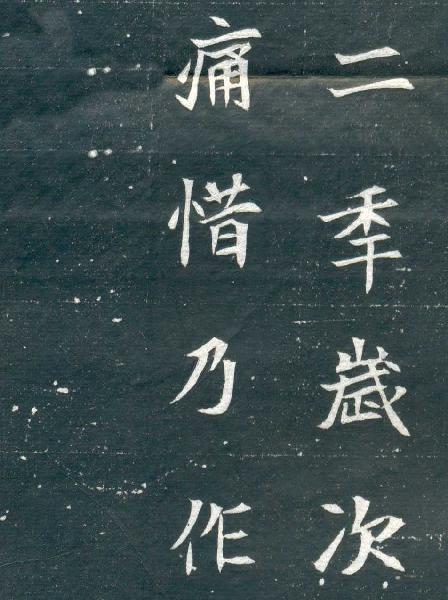 二秊歲次
痛惜乃作